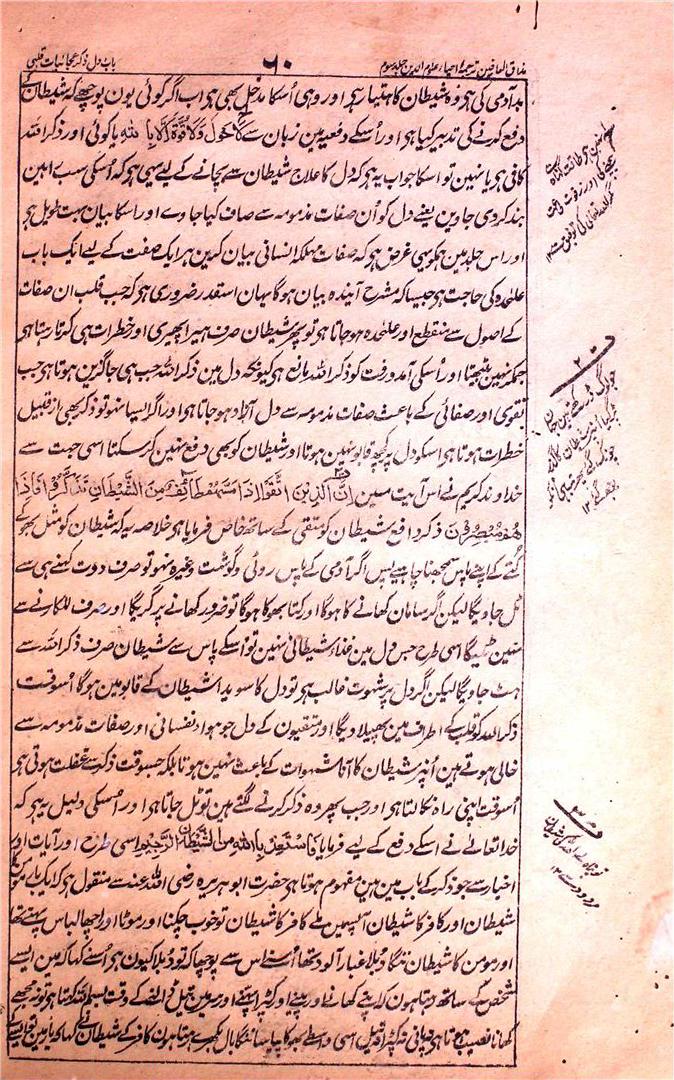 مذاق العارفین ترجمہ احیاء علوم الدین جلد سوم
۶۰
باب دل ذکر عجائبات قلبی
بد آدمی کی ہر وہ شیطان کا ہتیار ہر اور وہی اُسکا مدخل بھی ہر اب اگر کوئی یون پوچھے کہ شیطان کے
دفع کرنے کی تدبیر کیا ہر اور اُسکے دفعیہ مین زبان سے لَا حَوْلَ وَلَا قُوَّۃَ اِلَّا بِاللہِ یا کوئی اور ذکر اللہ
کافی ہر یا نہین تو اسکا جواب یہ ہر کہ دل کا علاج شیطان سے بچانے کے لیے یہی ہر کہ اُسکی سب راہین
بند کر دی جاوین یعنے دل کو اُن صفات مذمومہ سے صاف کیا جاوے اور اسکا بیان بہت طویل ہر
اور اس جلد مین ہمکو یہی غرض ہر کہ صفات مہلکہ انسانی بیان کرین ہر ایک صفت کے لیے ایک باب
علٰحدہ کی حاجت ہر جیسا کہ مشرح آیندہ بیان ہوگا یہان اسقدر ضروری ہر کہ جب قلب ان صفات
کے اصول سے منقطع اور علٰحدہ ہو جاتا ہر تو پھر شیطان صرف ہیرا پھیری اور خطرات ہی کرتا رہتا ہر
جمکر نہین بیٹھتا اور اُسکی آمد و رفت کو ذکر اللہ مانع ہر کیونکہ دل مین ذکر اللہ جب ہی جاگزین ہوتا ہر جب
تقوی اور صفائی کے باعث صفات مذمومہ سے دل آزاد ہو جاتا ہر اور اگر ایسا نہو تو ذکر بھی از قبیل
خطرات ہوتا ہر اسکو دل پر کچھ قابو نہین ہوتا اور شیطان کو بھی دفع نہین کر سکتا اسی جہت سے
خداوند کریم نے اس آیت مین اِنَّ الَّذِیْنَ اتَّقَوْا اِذَا مَسَّھُمْ طَائِفٌ مِّنَ الشَّیْطَانِ تَذَکَّرُوْا فَاِذَا
ھُمْ مُّبْصِرُوْنَ ذکر دافع شیطان کو متقی کے ساتھ خاص فرمایا ہر خلاصہ یہ کہ شیطان کو مثل بھوکے
کُتے کے اپنے پاس سمجھنا چاہیے پس اگر آدمی کے پاس روٹی و گوشت وغیرہ نہو تو صرف دوت کہنے ہی سے
ٹل جاویگا لیکن اگر سامان کھانے کا ہوگا اور کتا بھوکا ہوگا تو ضرور کھانے پر گریگا اور صرف للکارنے سے
نہین ٹلیگا اسی طرح جس دل مین غذاء شیطانی نہین تو اُسکے پاس سے شیطان صرف ذکر اللہ سے
ہٹ جاویگا لیکن اگر دل پر شہوت غالب ہر تو دل کا سویدا شیطان کے قابو مین ہوگا اُسوقت
ذکر اللہ کو قلب کے اطراف مین پھیلا دیگا اور متقیون کے دل جو ہواء نفسانی اور صفات مذمومہ سے
خالی ہوتے ہین اُنپر شیطان کا آنا شہوات کے باعث نہین ہوتا بلکہ جسوقت ذکر سے غفلت ہوتی ہر
اُسوقت اپنی راہ نکالتا ہر اور جب پھر وہ ذکر کرنے لگتے ہین تو ٹل جاتا ہر اور اُسکی دلیل یہ ہر کہ
خدا تعالے نے اسکے دفع کے لیے فرمایا فَاسْتَعِذْ بِاللہِ مِنَ الشَّیْطَانِ الرَّجِیْمِ اسی طرح اور آیات اور
اخبار سے جو ذکر کے باب مین ہین مفہوم ہوتا ہر حضرت ابو ہریرہ رضی اللہ عنہ سے منقول ہر کہ ایکبار مومن کا
شیطان اور کافر کا شیطان آپسمین ملے کافر کا شیطان تو خوب چکنا اور موٹا اور اچھا لباس پہنے تھا
اور مومن کا شیطان ننگا دُبلا غبار آلود تھا اُسنے اس سے پوچھا کہ تو دُبلا کیون ہر اُسنے کہا کہ مین ایسے
شخص کے ساتھ رہتا ہون کہ اپنے کھانے اور پینے اور کپڑا پہننے اور سر مین تیل ڈالنے کے وقت بسم اللہ کہتا ہر تو نہ مجھے
کھانا نصیب ہوتا ہر نہ پانی نہ کپڑا نہ تیل اسی واسطے بھوکا پیاسا ننگا بال بکھرے رہتا ہون کافر کے شیطان نے کہا کہ یار مین تو ایسے